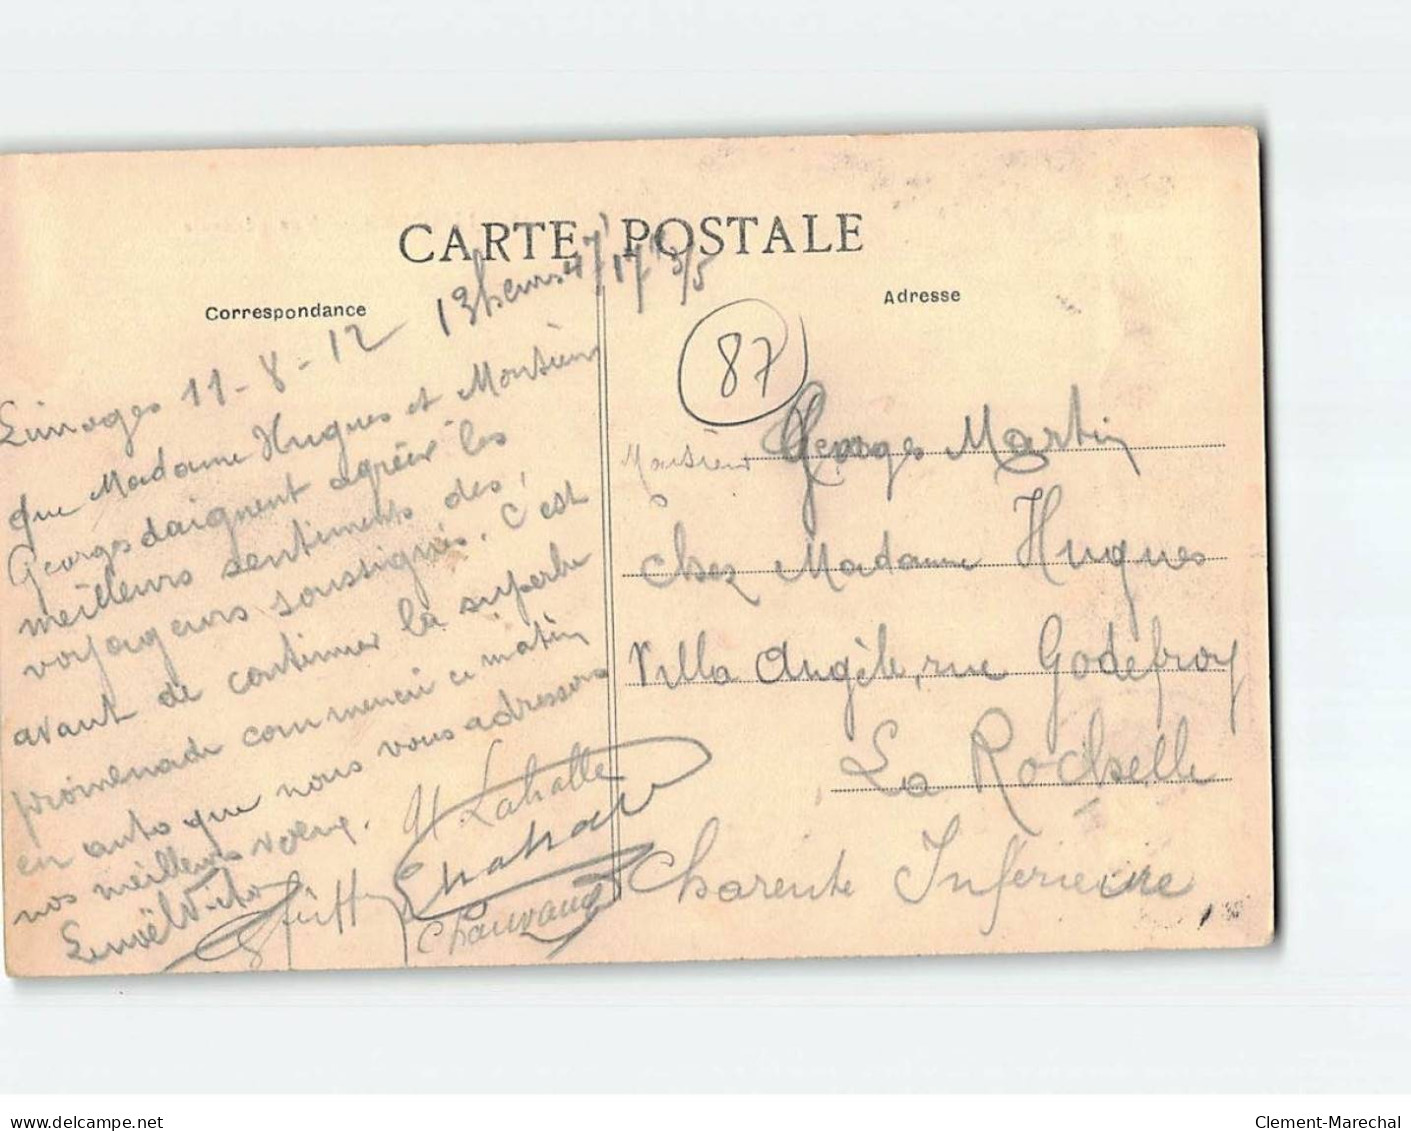 CARTE POSTALE
Correspondance
Adresse
Limoges 11-8-12 13 heures 47' 17"
87
que Madame Hugues et Monsieur
Georges daignent agréer les
meilleurs sentiments des
voyageurs soussignés. C'est
avant de continuer la superbe
promenade commencée ce matin
en auto que nous vous adressons
nos meilleurs voeux.
H. Lahalle
Chauvaud
Monsieur Georges Martin
chez Madame Hugues
Villa Angèle, rue Godefroy
La Rochelle
Charente Inférieure
www.delcampe.net
Clement-Marechal